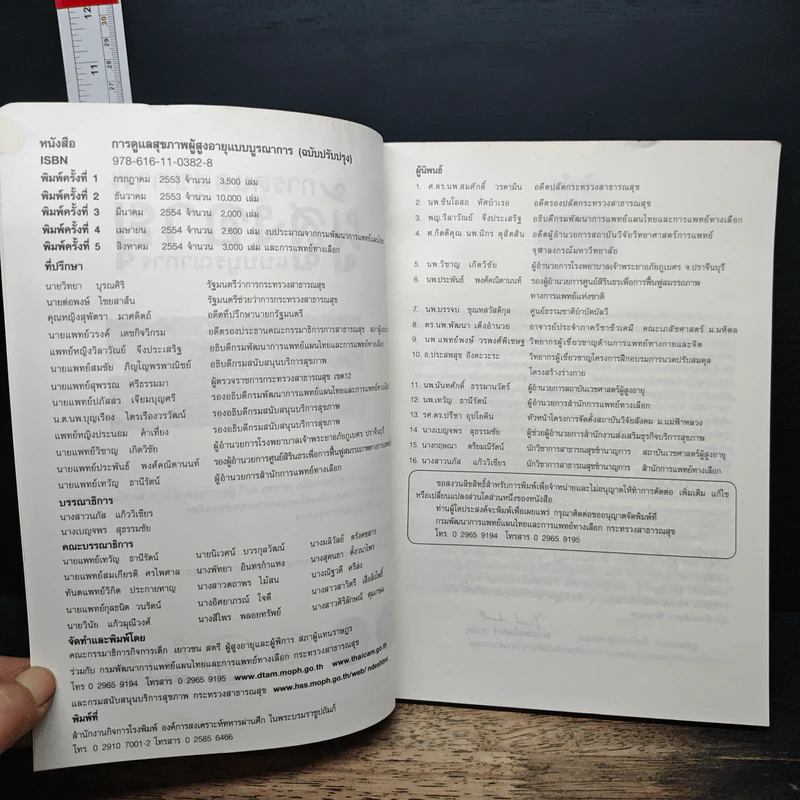 หนังสือ การดูแลสุขภาพผู้สูงอายุแบบบูรณาการ (ฉบับปรับปรุง)
ISBN 978-616-11-0382-8
พิมพ์ครั้งที่ 1 กรกฎาคม 2553 จำนวน 3,500 เล่ม
พิมพ์ครั้งที่ 2 ธันวาคม 2553 จำนวน 10,000 เล่ม
พิมพ์ครั้งที่ 3 มีนาคม 2554 จำนวน 2,000 เล่ม
พิมพ์ครั้งที่ 4 เมษายน 2554 จำนวน 2,600 เล่ม งบประมาณจากกรมพัฒนาการแพทย์แผนไทย
พิมพ์ครั้งที่ 5 สิงหาคม 2554 จำนวน 3,000 เล่ม และการแพทย์ทางเลือก
ที่ปรึกษา
นายวิทยา บุรณศิริ รัฐมนตรีว่าการกระทรวงสาธารณสุข
นายต่อพงษ์ ไชยสาส์น รัฐมนตรีช่วยว่าการกระทรวงสาธารณสุข
คุณหญิงสุพัตรา มาศดิตถ์ อดีตที่ปรึกษานายกรัฐมนตรี
นายแพทย์วรงค์ เดชกิจวิกรม อดีตรองประธานคณะกรรมาธิการการสาธารณสุข
แพทย์หญิงวิลาวัณย์ จึงประเสริฐ อธิบดีกรมพัฒนาการแพทย์แผนไทยและการแพทย์ทางเลือก
นายแพทย์สมชัย ภิญโญพรพาณิชย์ อธิบดีกรมสนับสนุนบริการสุขภาพ
นายแพทย์สุพรรณ ศรีธรรมมา ผู้ตรวจราชการกระทรวงสาธารณสุข เขต12
นายแพทย์ปภัสสร เจียมบุญศรี รองอธิบดีกรมพัฒนาการแพทย์แผนไทยและการแพทย์ทางเลือก
น.ต.นพ.บุญเรือง ไตรเรืองวรวัฒน์ รองอธิบดีกรมสนับสนุนบริการสุขภาพ
แพทย์หญิงประนอม คำเที่ยง รองอธิบดีกรมสนับสนุนบริการสุขภาพ
นายแพทย์วิชาญ เกิดวิชัย ผู้อำนวยการโรงพยาบาลเจ้าพระยาอภัยภูเบศร ปราจีนบุรี
นายแพทย์ประพันธ์ พงศ์คณิตานนท์ รองผู้อำนวยการศูนย์สิรินธรเพื่อการฟื้นฟูสมรรถภาพทางการแพทย์
นายแพทย์เทวัญ ธานีรัตน์ ผู้อำนวยการสำนักการแพทย์ทางเลือก
บรรณาธิการ
นางสาวนภัส แก้ววิเชียร
นางเบญจพร สุธรรมชัย
คณะบรรณาธิการ
นายแพทย์เทวัญ ธานีรัตน์ นายนิเวศน์ บวรกุลวัฒน์ นางมลิวัลย์ ตรังคธาร
นายแพทย์สมเกียรติ ศรไพศาล นางพัทยา อินทรกำแหง นางสุคนธา
ทันตแพทย์วิกิต ประกายหาญ นางสาวดถาพร ไม้สน นางณัฐวดี ศรีส่ง
นายแพทย์กุลธนิต วนรัตน์ นางอัศยาภรณ์ ใจดี นางสาวสาวิตรี
นายวินัย แก้วมุณีวงศ์ นางสีไพร พลอยทรัพย์ นางสาวศิริลักษณ์
จัดทำและพิมพ์โดย
คณะกรรมาธิการกิจการเด็ก เยาวชน สตรี ผู้สูงอายุและผู้พิการ สภาผู้แทนราษฎร
ร่วมกับ กรมพัฒนาการแพทย์แผนไทยและการแพทย์ทางเลือก กระทรวงสาธารณสุข
โทร 0 2965 9194 โทรสาร 0 2965 9195 www.dtam.moph.go.th www.thaicam.go.th
และกรมสนับสนุนบริการสุขภาพ กระทรวงสาธารณสุข www.hss.moph.go.th/web/ndexhtml
พิมพ์ที่
สำนักงานกิจการโรงพิมพ์ องค์การสงเคราะห์ทหารผ่านศึก ในพระบรมราชูปถัมภ์
โทร. 0 2910 7001-2 โทรสาร 0 2585 6466
ผู้นิพนธ์
1. ศ.ดร.นพ.สมศักดิ์ วรคามิน อดีตปลัดกระทรวงสาธารณสุข
2. นพ.ชินโอสถ หัศบำเรอ อดีตรองปลัดกระทรวงสาธารณสุข
3. พญ.วิลาวัณย์ จึงประเสริฐ อธิบดีกรมพัฒนาการแพทย์แผนไทยและการแพทย์ทางเลือก
4. ศ.กิตติคุณ นพ.นิกร ดุสิตสิน อดีตผู้อำนวยการสถาบันวิจัยวิทยาศาสตร์การแพทย์
จุฬาลงกรณ์มหาวิทยาลัย
5. นพ.วิชาญ เกิดวิชัย ผู้อำนวยการโรงพยาบาลเจ้าพระยาอภัยภูเบศร จ.ปราจีนบุรี
6. นพ.ประพันธ์ พงศ์คณิตานนท์ รองผู้อำนวยการศูนย์สิรินธรเพื่อการฟื้นฟูสมรรถภาพ
ทางการแพทย์แห่งชาติ
7. นพ.บรรจบ ชุณหสวัสดิกุล ศูนย์ธรรมชาติบำบัดบัลวี
8. ดร.นพ.พัฒนา เต็งอำนวย อาจารย์ประจำภาควิชาชีวเคมี คณะเภสัชศาสตร์ ม.มหิดล
9. นพ.แพทย์พงษ์ วรพงศ์พิเชษฐ วิทยากรผู้เชี่ยวชาญด้านการแพทย์ทางกายและจิต
10. อ.ประสพสุข อิงคะวะระ วิทยากรผู้เชี่ยวชาญโครงการฝึกอบรมการนวดปรับสมดุล
โครงสร้างร่างกาย
11. นพ.นันทศักดิ์ ธรรมานวัตร์ ผู้อำนวยการสถาบันเวชศาสตร์ผู้สูงอายุ
12. นพ.เทวัญ ธานีรัตน์ ผู้อำนวยการสำนักการแพทย์ทางเลือก
13. รศ.ดร.ปรีชา อุปโยคิน หัวหน้าโครงการจัดตั้งสถาบันวิจัยสังคม ม.แม่ฟ้าหลวง
14. นางเบญจพร สุธรรมชัย ผู้ช่วยผู้อำนวยการสำนักงานส่งเสริมธุรกิจบริการสุขภาพ
15. นางกฤษณา ตรียมณีรัตน์ นักวิชาการสาธารณสุขชำนาญการ สถาบันเวชศาสตร์ผู้สูงอายุ
16. นางสาวนภัส แก้ววิเชียร นักวิชาการสาธารณสุขชำนาญการ สำนักการแพทย์ทางเลือก
ขอสงวนลิขสิทธิ์สำหรับการพิมพ์เพื่อจำหน่ายและไม่อนุญาตให้ทำการตัดต่อ เพิ่มเติม แก้ไข
หรือเปลี่ยนแปลงส่วนใดส่วนหนึ่งของหนังสือ
ท่านผู้ใดประสงค์จะพิมพ์เพื่อเผยแพร่ กรุณาติดต่อขออนุญาตจัดพิมพ์ที่
กรมพัฒนาการแพทย์แผนไทยและการแพทย์ทางเลือก กระทรวงสาธารณสุข
โทร. 0 2965 9194 โทรสาร 0 2965 9195